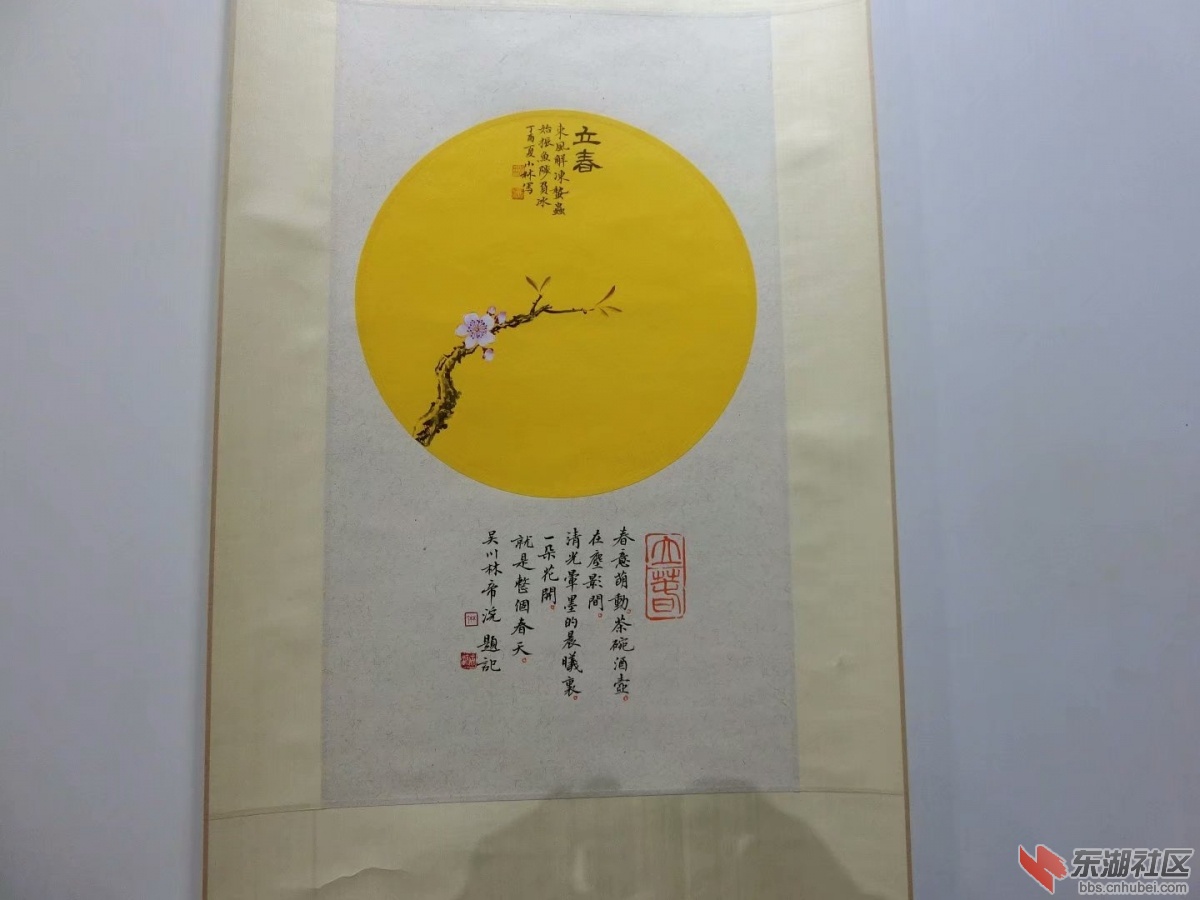 立春
東風解凍蟄蟲
始振魚陟負冰
丁酉夏小林写
立春
春意萌動。茶碗酒壺。
在塵影間。
清光暈墨的晨曦裏。
一朵花開。
就是整個春天。
吴川林帝浣 題記
东湖社区
bbs.cnhubei.com